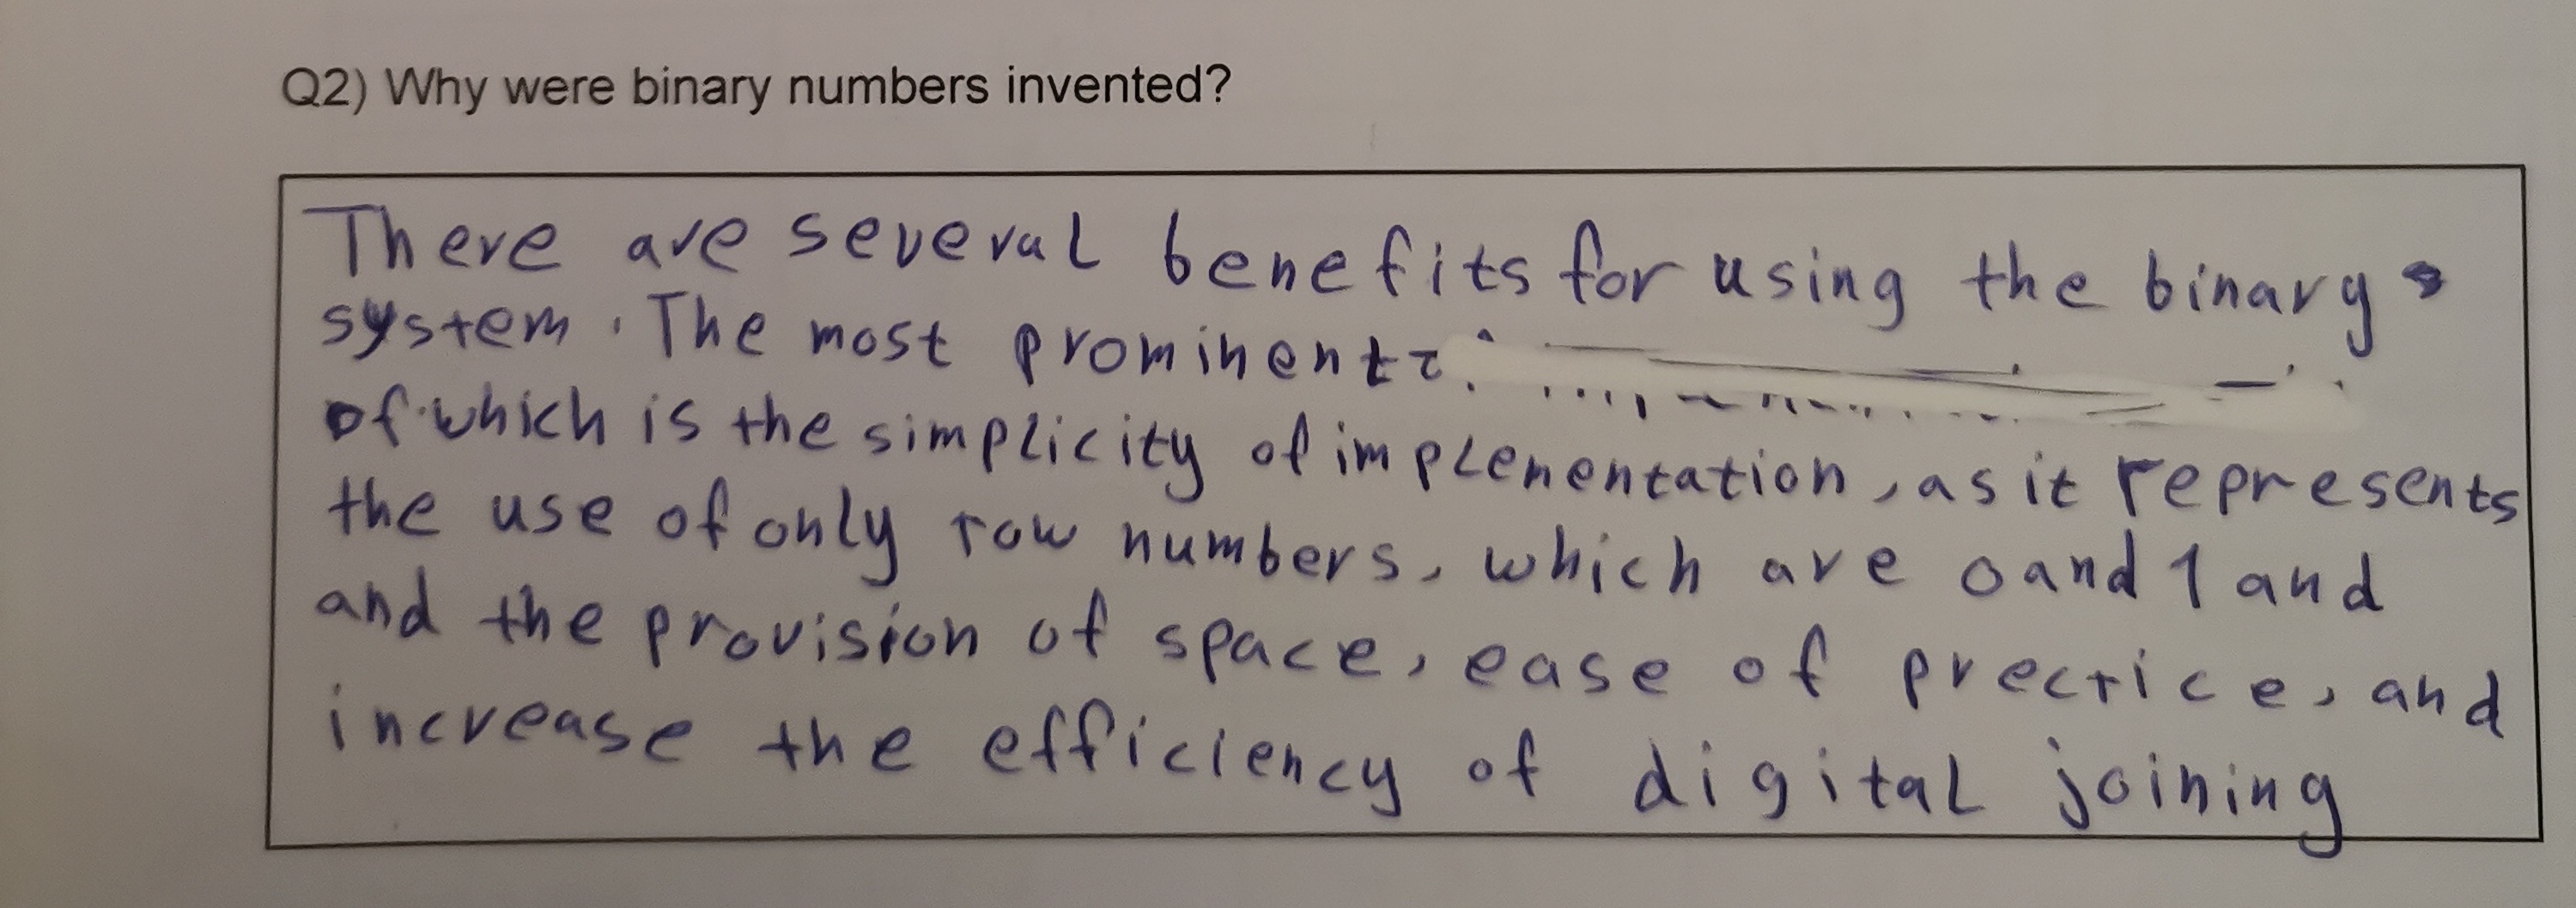 Q2) Why were binary numbers invented?
There are several benefits for using the binary
system. The most prominent
of which is the simplicity of implementation, as it represents
the use of only tow numbers, which are 0 and 1 and
and the provision of space, ease of prectice, and
increase the efficiency of digital joining